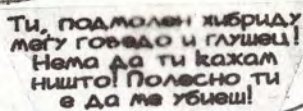 Ти, подмолен хибриду
меѓу говедо и глушец!
Нема да ти кажам
ништо! Полесно ти
е да ме убиеш!